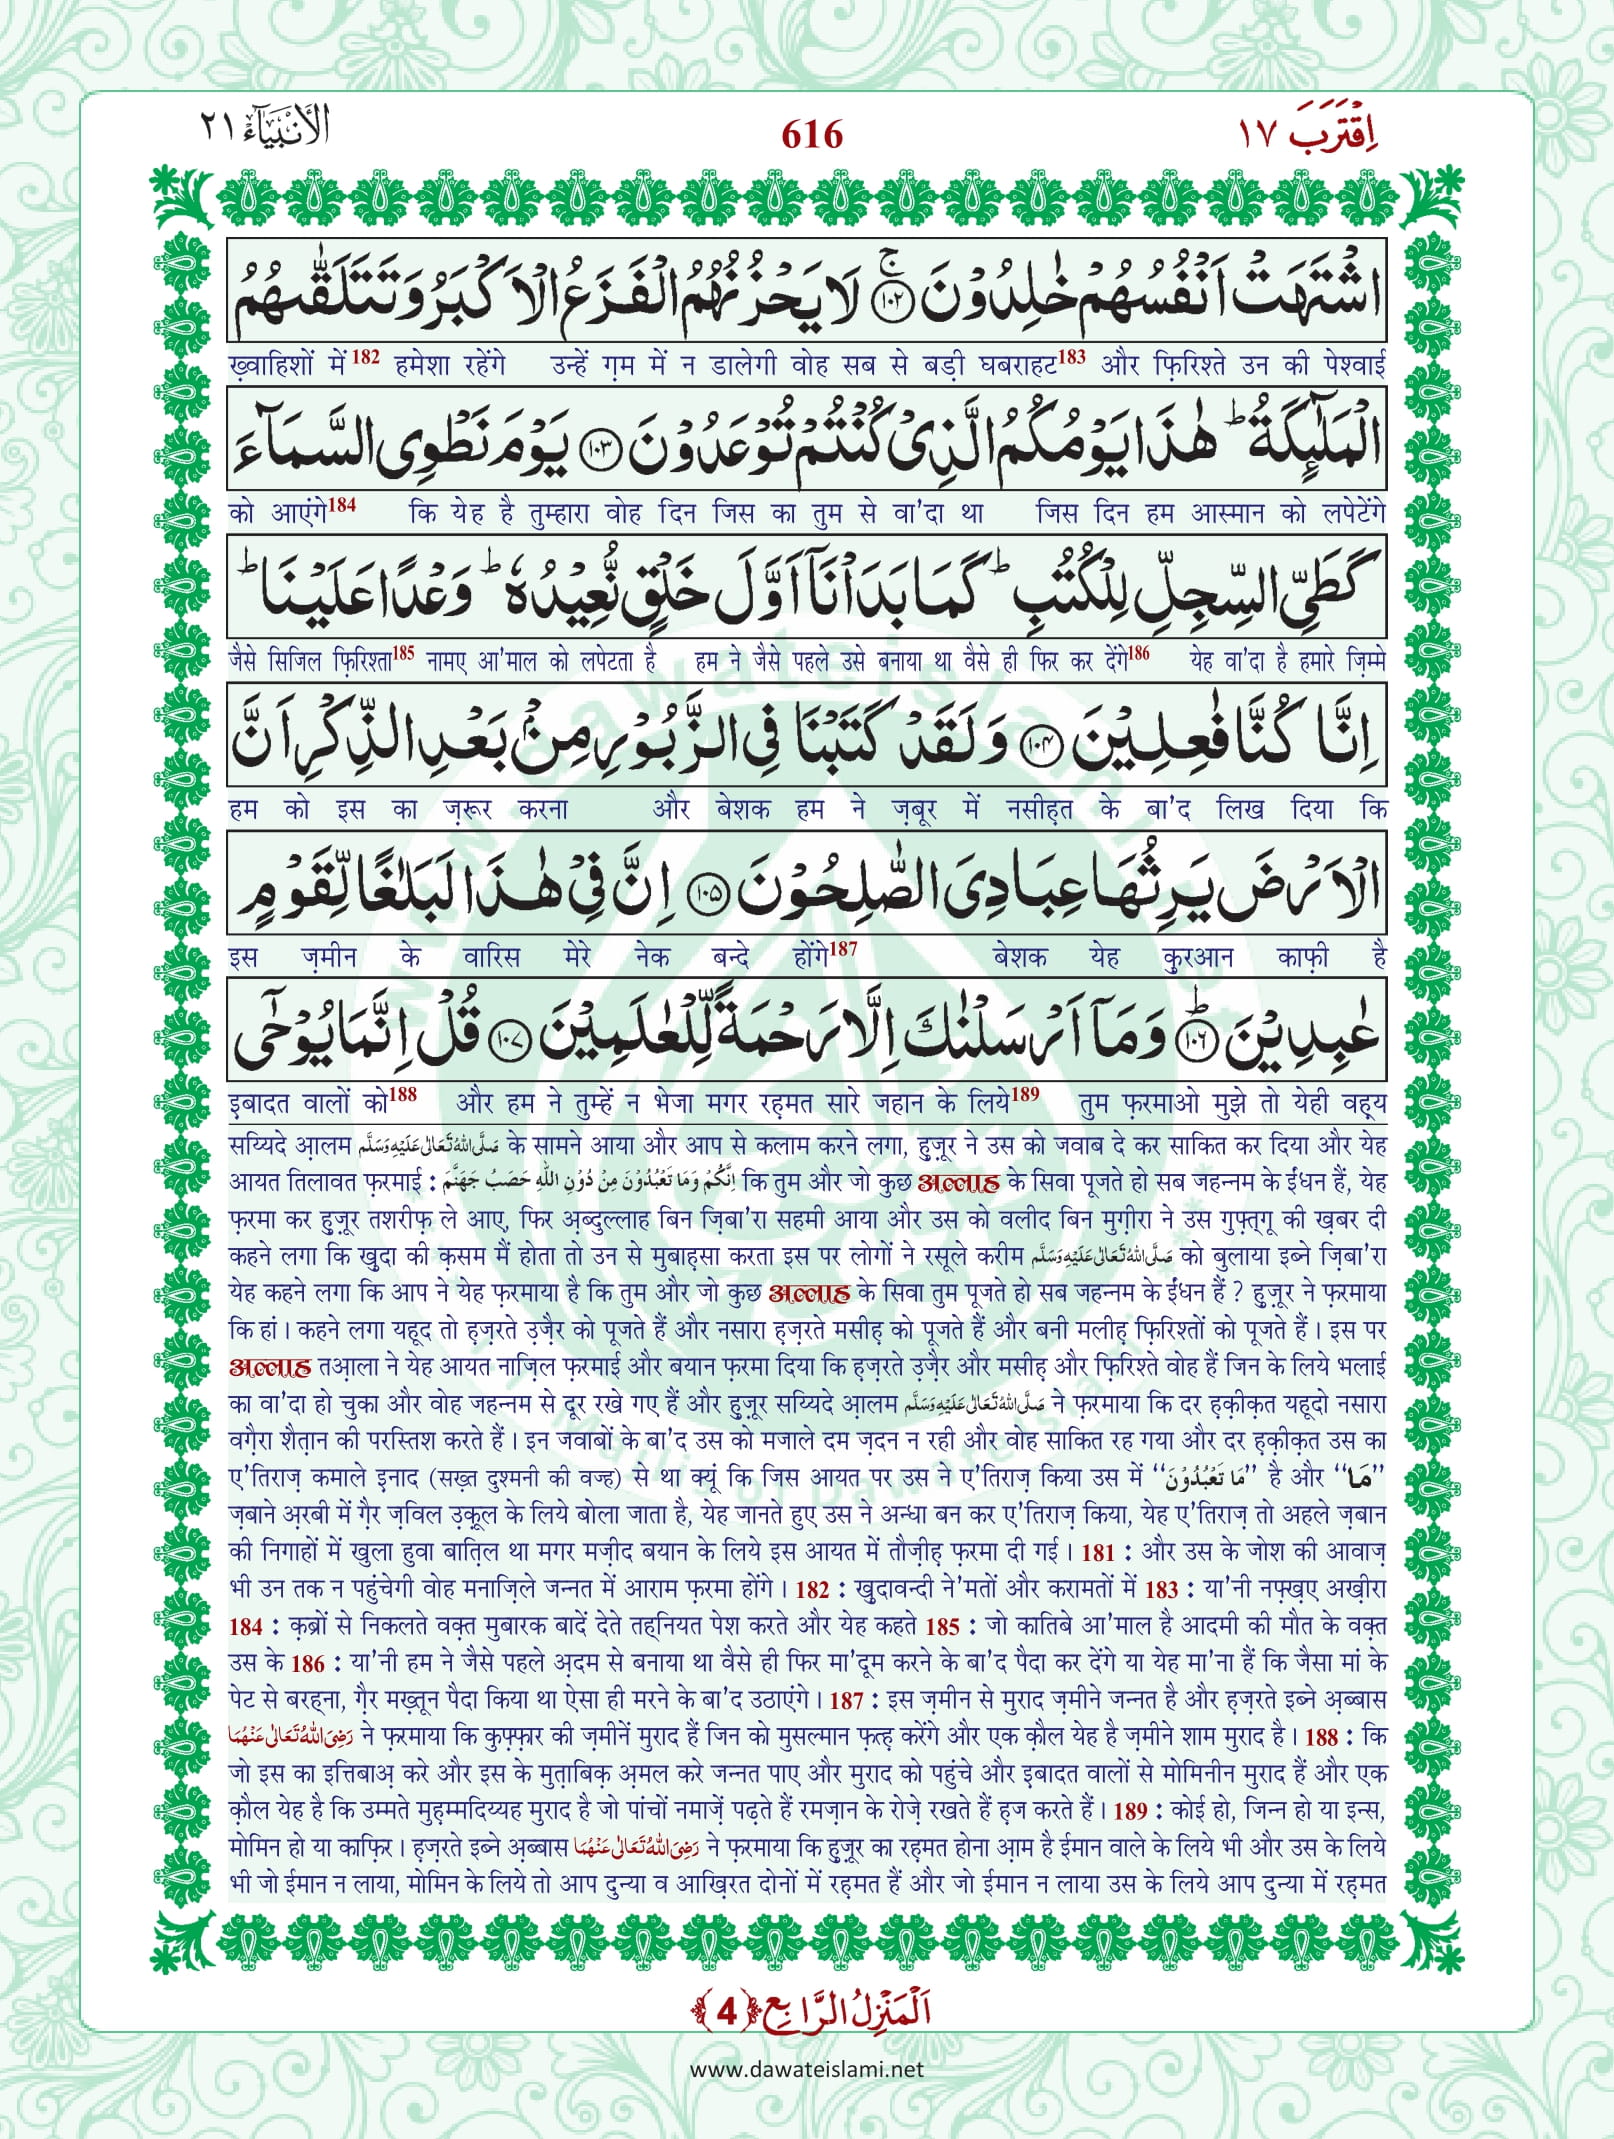 الْاَنْبِيَآء ٢١
616
اِقْتَرَبَ ١٧
اشْتَهَتْ اَنْفُسُهُمْ خٰلِدُوْنَ ۚ﴿١٠٢﴾ لَا يَحْزُنُهُمُ الْفَزَعُ الْاَكْبَرُ وَتَتَلَقّٰىهُمُ
ख़्वाहिशों में182 हमेशा रहेंगे उन्हें ग़म में न डालेगी वोह सब से बड़ी घबराहट183 और फ़िरिश्ते उन की पेश्वाई
الْمَلٰٓئِكَةُ ؕ هٰذَا يَوْمُكُمُ الَّذِىْ كُنْتُمْ تُوْعَدُوْنَ ﴿١٠٣﴾ يَوْمَ نَطْوِى السَّمَآءَ
को आएंगे184 कि येह है तुम्हारा वोह दिन जिस का तुम से वा'दा था जिस दिन हम आस्मान को लपेटेंगे
كَطَىِّ السِّجِلِّ لِلْكُتُبِ ؕ كَمَا بَدَاْنَاۤ اَوَّلَ خَلْقٍ نُّعِيْدُهٗ ؕ وَعْدًا عَلَيْنَا ؕ
जैसे सिजिल फ़िरिश्ता185 नामए आ'माल को लपेटता है हम ने जैसे पहले उसे बनाया था वैसे ही फिर कर देंगे186 येह वा'दा है हमारे ज़िम्मे
اِنَّا كُنَّا فٰعِلِيْنَ ﴿١٠٤﴾ وَلَقَدْ كَتَبْنَا فِى الزَّبُوْرِ مِنْۢ بَعْدِ الذِّكْرِ اَنَّ
हम को इस का ज़रूर करना और बेशक हम ने ज़बूर में नसीहत के बा'द लिख दिया कि
الْاَرْضَ يَرِثُهَا عِبَادِىَ الصّٰلِحُوْنَ ﴿١٠٥﴾ اِنَّ فِىْ هٰذَا لَبَلٰغًا لِّقَوْمٍ
इस ज़मीन के वारिस मेरे नेक बन्दे होंगे187 बेशक येह कुरआन काफ़ी है
عٰبِدِيْنَ ؕ﴿١٠٦﴾ وَمَاۤ اَرْسَلْنٰكَ اِلَّا رَحْمَةً لِّلْعٰلَمِيْنَ ﴿١٠٧﴾ قُلْ اِنَّمَا يُوْحٰۤى
इबादत वालों को188 और हम ने तुम्हें न भेजा मगर रह़मत सारे जहान के लिये189 तुम फ़रमाओ मुझे तो येही वह़्य
सय्यिदे आ़लम صَلَّى اللهُ تَعَالٰى عَلَيْهِ وَسَلَّم के सामने आया और आप से कलाम करने लगा, हुज़ूर ने उस को जवाब दे कर साकित कर दिया और येह
आयत तिलावत फ़रमाई : اِنَّكُمْ وَمَا تَعْبُدُوْنَ مِنْ دُوْنِ اللهِ حَصَبُ جَهَنَّمَ कि तुम और जो कुछ अल्लाह के सिवा पूजते हो सब जहन्नम के ईंधन हैं, येह
फ़रमा कर हुज़ूर तशरीफ़ ले आए, फिर अ़ब्दुल्लाह बिन ज़िबा'रा सहमी आया और उस को वलीद बिन मुग़ीरा ने उस गुफ़्त्गू की ख़बर दी
कहने लगा कि ख़ुदा की क़सम मैं होता तो उन से मुबाह़सा करता इस पर लोगों ने रसूले करीम صَلَّى اللهُ تَعَالٰى عَلَيْهِ وَسَلَّم को बुलाया इब्ने ज़िबा'रा
येह कहने लगा कि आप ने येह फ़रमाया है कि तुम और जो कुछ अल्लाह के सिवा तुम पूजते हो सब जहन्नम के ईंधन हैं ? हुज़ूर ने फ़रमाया
कि हां । कहने लगा यहूद तो ह़ज़रते उ़ज़ैर को पूजते हैं और नसारा ह़ज़रते मसीह़ को पूजते हैं और बनी मलीह़ फ़िरिश्तों को पूजते हैं । इस पर
अल्लाह तआ़ला ने येह आयत नाज़िल फ़रमाई और बयान फ़रमा दिया कि ह़ज़रते उ़ज़ैर और मसीह़ और फ़िरिश्ते वोह हैं जिन के लिये भलाई
का वा'दा हो चुका और वोह जहन्नम से दूर रखे गए हैं और हुज़ूर सय्यिदे आ़लम صَلَّى اللهُ تَعَالٰى عَلَيْهِ وَسَلَّم ने फ़रमाया कि दर ह़क़ीक़त यहूदो नसारा
वग़ैरा शैत़ान की परस्तिश करते हैं । इन जवाबों के बा'द उस को मजाले दम ज़दन न रही और वोह साकित रह गया और दर ह़क़ीक़त उस का
ए'तिराज़ कमाले इनाद (सख़्त दुश्मनी की वज्ह) से था क्यूं कि जिस आयत पर उस ने ए'तिराज़ किया उस में ‘‘مَا تَعْبُدُوْنَ’’ है और ‘‘مَا’’
ज़बाने अ़रबी में ग़ैर ज़विल उ़क़ूल के लिये बोला जाता है, येह जानते हुए उस ने अन्धा बन कर ए'तिराज़ किया, येह ए'तिराज़ तो अहले ज़बान
की निगाहों में खुला हुवा बात़िल था मगर मज़ीद बयान के लिये इस आयत में तौज़ीह़ फ़रमा दी गई । 181 : और उस के जोश की आवाज़
भी उन तक न पहुंचेगी वोह मनाज़िले जन्नत में आराम फ़रमा होंगे । 182 : ख़ुदावन्दी ने'मतों और करामतों में 183 : या'नी नफ़्ख़ए अख़ीरा
184 : क़ब्रों से निकलते वक़्त मुबारक बादें देते तहनियत पेश करते और येह कहते 185 : जो कातिबे आ'माल है आदमी की मौत के वक़्त
उस के 186 : या'नी हम ने जैसे पहले अ़दम से बनाया था वैसे ही फिर मा'दूम करने के बा'द पैदा कर देंगे या येह मा'ना हैं कि जैसा मां के
पेट से बरह्ना, ग़ैर मख़्तून पैदा किया था ऐसा ही मरने के बा'द उठाएंगे । 187 : इस ज़मीन से मुराद ज़मीने जन्नत है और ह़ज़रते इब्ने अ़ब्बास
رَضِىَ اللهُ تَعَالٰى عَنْهُمَا ने फ़रमाया कि कुफ़्फ़ार की ज़मीनें मुराद हैं जिन को मुसल्मान फ़त्ह़ करेंगे और एक क़ौल येह है ज़मीने शाम मुराद है । 188 : कि
जो इस का इत्तिबाअ़ करे और इस के मुत़ाबिक़ अ़मल करे जन्नत पाए और मुराद को पहुंचे और इ़बादत वालों से मोमिनीन मुराद हैं और एक
क़ौल येह है कि उम्मते मुह़म्मदिय्यह मुराद है जो पांचों नमाज़ें पढ़ते हैं रमज़ान के रोज़े रखते हैं ह़ज करते हैं । 189 : कोई हो, जिन्न हो या इन्स,
मोमिन हो या काफ़िर । ह़ज़रते इब्ने अ़ब्बास رَضِىَ اللهُ تَعَالٰى عَنْهُمَا ने फ़रमाया कि हुज़ूर का रह़मत होना आ़म है ईमान वाले के लिये भी और उस के लिये
भी जो ईमान न लाया, मोमिन के लिये तो आप दुन्या व आख़िरत दोनों में रह़मत हैं और जो ईमान न लाया उस के लिये आप दुन्या में रह़मत
اَلْمَنْزِلُ الرَّابِع ﴿4﴾
www.dawateislami.net